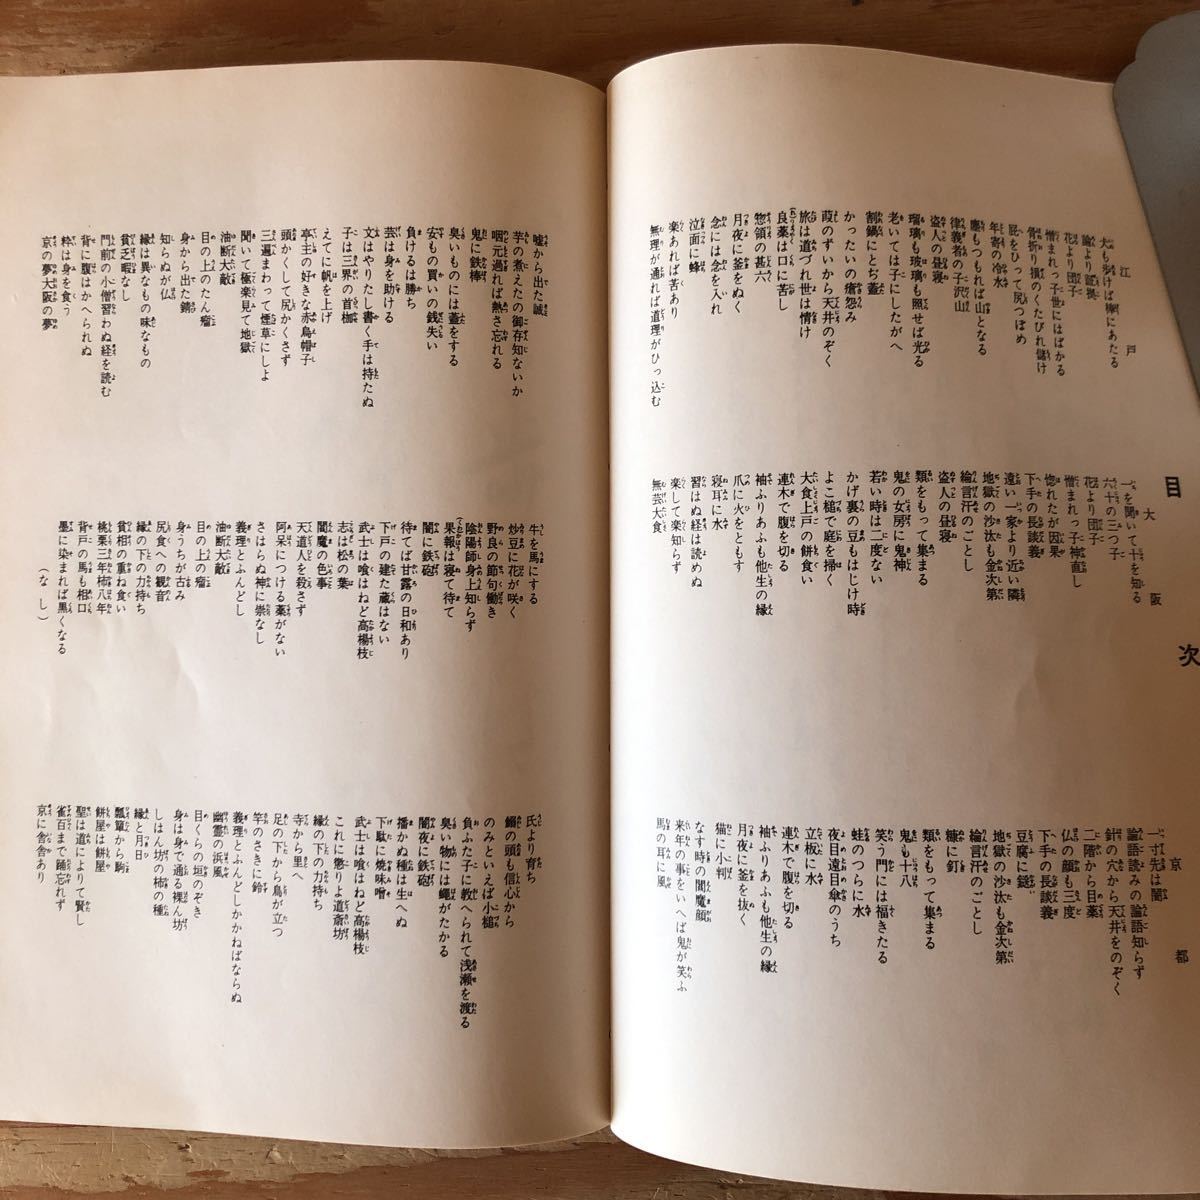 目次
江戸
犬も歩けば棒にあたる
論より証拠
花より団子
憎まれっ子世にはばかる
骨折り損のくたびれ儲け
屁をひって尻つぼめ
年寄の冷水
塵もつもれば山となる
律義者の子沢山
盗人の昼寝
瑠璃も玻璃も照せば光る
老いては子にしたがへ
割鍋にとぢ蓋
かったいの瘡怨み
葭のずいから天井のぞく
旅は道づれ世は情け
良薬は口に苦し
惣領の甚六
月夜に釜をぬく
念には念を入れ
泣面に蜂
楽あれば苦あり
無理が通れば道理がひっ込む
大阪
一を聞いて十を知る
六十の三つ子
花より団子
憎まれっ子神直し
惚れたが因果
下手の長談義
遠い一家より近い隣
地獄の沙汰も金次第
綸言汗のごとし
盗人の昼寝
類をもって集まる
鬼の女房に鬼神
若い時は二度ない
かげ裏の豆もはじけ時
よこ槌で庭を掃く
大食上戸の餅食い
連木で腹を切る
袖ふりあふも他生の縁
爪に火をともす
寝耳に水
習はぬ経は読めぬ
楽して楽知らず
無芸大食
京都
一寸先は闇
論語読みの論語知らず
針の穴から天井をのぞく
二階から目薬
仏の顔も三度
下手の長談義
豆腐に鎹
地獄の沙汰も金次第
綸言汗のごとし
糠に釘
類をもって集まる
鬼も十八
笑う門には福きたる
蛙のつらに水
夜目遠目傘のうち
立板に水
連木で腹を切る
袖ふりあふも他生の縁
月夜に釜を抜く
猫に小判
なす時の閻魔顔
来年の事をいへば鬼が笑ふ
馬の耳に風
嘘から出た誠
芋の煮えたの御存知ないか
咽元過れば熱さ忘れる
鬼に鉄棒
臭いものには蓋をする
安もの買いの銭失い
負けるは勝ち
芸は身を助ける
文はやりたし書く手は持たぬ
子は三界の首枷
えてに帆を上げ
亭主の好きな赤烏帽子
頭かくして尻かくさず
三遍まわって煙草にしよ
聞いて極楽見て地獄
油断大敵
目の上のたん瘤
身から出た錆
知らぬが仏
縁は異なもの味なもの
貧乏暇なし
門前の小僧習わぬ経を読む
背に腹はかへられぬ
粋は身を食う
京の夢大阪の夢
牛を馬にする
炒豆に花が咲く
野良の節句働き
陰陽師身上知らず
果報は寝て待て
闇に鉄砲
待てば甘露の日和あり
下戸の建た蔵はない
武士は喰はねど高楊枝
志は松の葉
閻魔の色事
天道人を殺さず
阿呆につける薬がない
さはらぬ神に祟なし
義理とふんどし
油断大敵
目の上の瘤
身うちが古み
尻食へ観音
縁の下の力持ち
貧相の重ね食い
桃栗三年柿八年
背戸の馬も相口
墨に染まれば黒くなる
(なし)
氏より育ち
鰯の頭も信心から
のみといえば小槌
負ふた子に教へられて浅瀬を渡る
臭い物には蠅がたかる
闇夜に鉄砲
播かぬ種は生へぬ
下駄に焼味噌
武士は喰はねど高楊枝
これに懲りよ道斎坊
縁の下の力持ち
寺から里へ
足の下から鳥が立つ
竿のさきに鈴
義理とふんどしかかねばならぬ
幽霊の浜風
目くらの垣のぞき
身は身で通る裸ん坊
しはん坊の柿の種
縁と月日
瓢箪から駒
餅屋は餅屋
聖は道によりて賢し
雀百まで踊忘れず
京に田舎あり